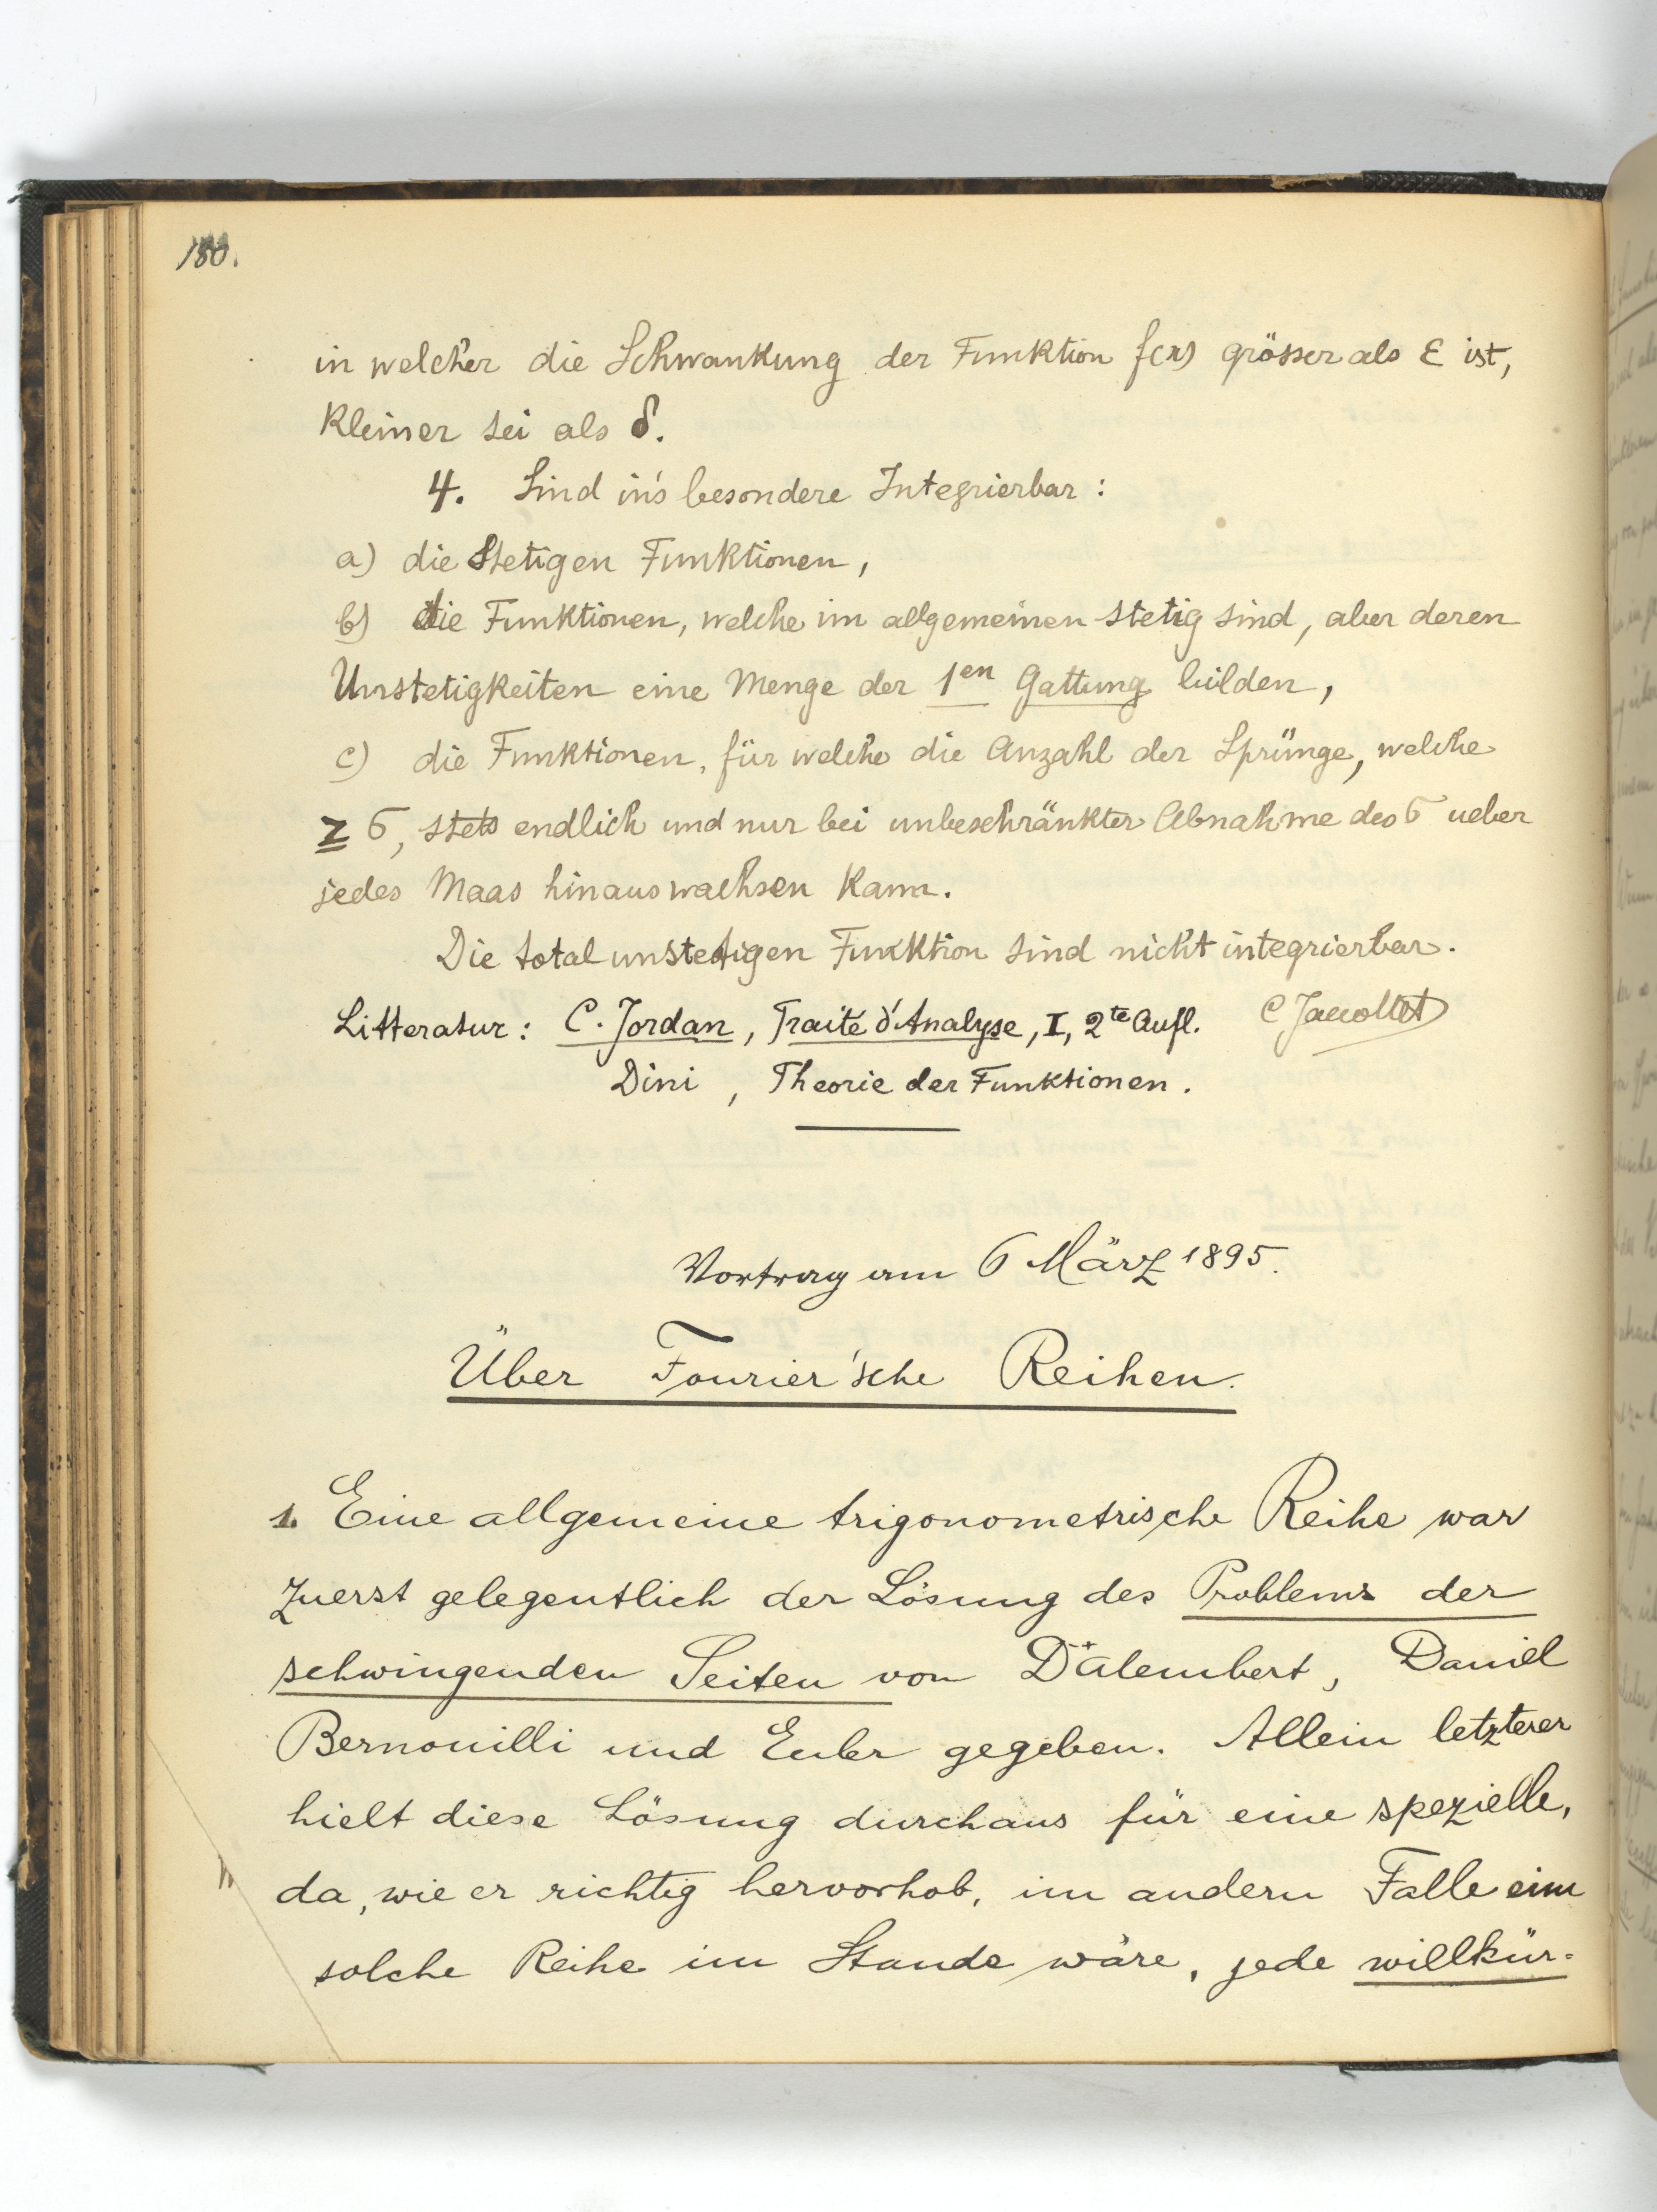 180.
in welcher die Schwankung der Funktion f(x) grösser als ε ist,
kleiner sei als δ.
4. Sind in's besondere Integrierbar:
a) die Stetigen Funktionen,
b) die Funktionen, welche im allgemeinen stetig sind, aber deren
Unstetigkeiten eine Menge der 1en Gattung bilden,
c) die Funktionen, für welche die Anzahl der Sprünge, welche
≧ σ, stets endlich und nur bei unbeschränkter Abnahme des σ ueber
jedes Maas hinauswachsen kann.
Die total unstetigen Funktion sind nicht integrierbar.
Litteratur: C. Jordan, Traité d'Analyse, I, 2te Aufl. C Jaccottet
Dini, Theorie der Funktionen.
Vortrag am 6 März 1895.
Über Fourier'sche Reihen.
1. Eine allgemeine trigonometrische Reihe war
zuerst gelegentlich der Lösung des Problems der
schwingenden Seiten von D'Alembert, Daniel
Bernouilli und Euler gegeben. Allein letzterer
hielt diese Lösung durchaus für eine spezielle,
da, wie er richtig hervorhob, im andern Falle eine
solche Reihe im Stande wäre, jede willkür-